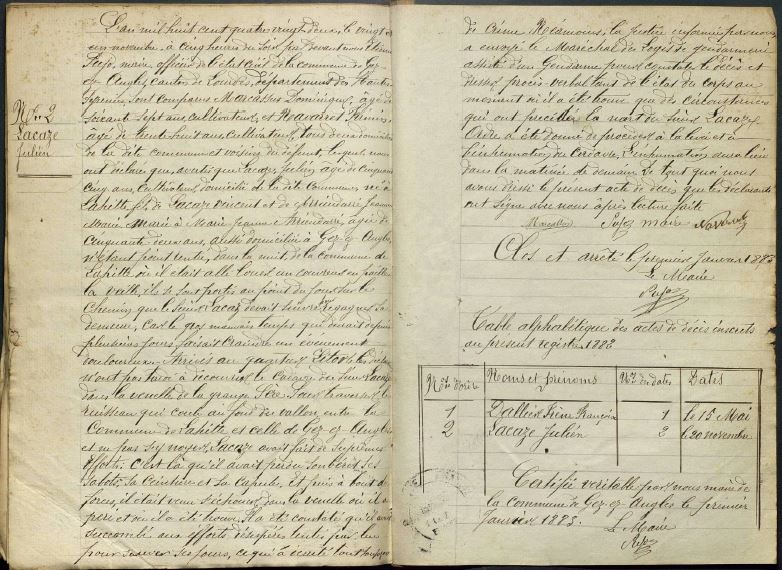 N° 2
Lacaze
Julien
L'an mil huit cent quatre vingt deux, le vingt
un novembre à cinq heures du soir, par devant nous
Pujo, maire, officier de l'état civil de la commune de Gez
ez Angles, canton de Lourdes, département des Hautes
Pyrénées, sont comparus Marcassus Dominique, âgé de
soixante sept ans, cultivateur, et
âgé de trente huit ans, cultivateur, tous deux domiciliés
de la dite commune et voisins du défunt, lesquels nous
ont déclaré que Lacaze Julien âgé de cinquante
cinq ans, cultivateur, domicilié de la dite commune, né à
Lahitte, fils de Lacaze Vincent et de
Marie, marié à Marie Jeanne âgée de
cinquante deux ans, aussi domiciliée à Gez ez Angles,
n'étant point rentré, dans la nuit, de la commune de
Lahitte où il était allé
la veille, ils se sont portés au point du jour sur le
chemin que le sieur Lacaze devait suivre pour sa
demeure, car le gros mauvais temps qui durait depuis
plusieurs jours faisait craindre un événement
douloureux. Arrivés au
n'ont pas tardé à découvrir le cadavre du sieur Lacaze
dans la de la grange
ruisseau qui coule au fond du vallon, entre la
commune de Lahitte et celle de Gez ez Angles
et ne pas s'y noyer, Lacaze avait fait de suprêmes
efforts. C'est là qu'il avait perdu son béret, ses
sabots, sa ceinture et sa capule, et puis à bout de
forces, il était venu dans la où il a
péri et où il a été trouvé. Il a été constaté qu'il avait
succombé aux efforts désespérés tentés par lui
pour sauver ses jours, ce qui a écarté tout soupçon
de crime. Néanmoins, la justice informée par nous
a envoyé le Maréchal des logis de gendarmerie
assisté d'un gendarme pour constater le décès et
dresser procès verbal tant de l'état du corps au
moment où il a été trouvé que des circonstances
qui ont précédé la mort du sieur Lacaze.
Ordre a été donné de procéder à la levée et à
l'inhumation du cadavre. L'inhumation aura lieu
dans la matinée de demain. De tout quoi nous
avons dressé le présent acte de décès que les déclarants
ont signé avec nous après lecture faite
Pujo maire
Clos et arrêté le premier Janvier 1883
Le Maire
Pujo
Table alphabétique des actes de décès inscrits
au présent registre 1882
Nos d'ordre Noms et prénoms Nos des actes Dates
1 François 1 le 15 Mai
2 Lacaze Julien 2 le 20 novembre
Certifié véritable par nous maire de
la commune de Gez ez Angles le premier
Janvier 1883.
Le Maire
Pujo